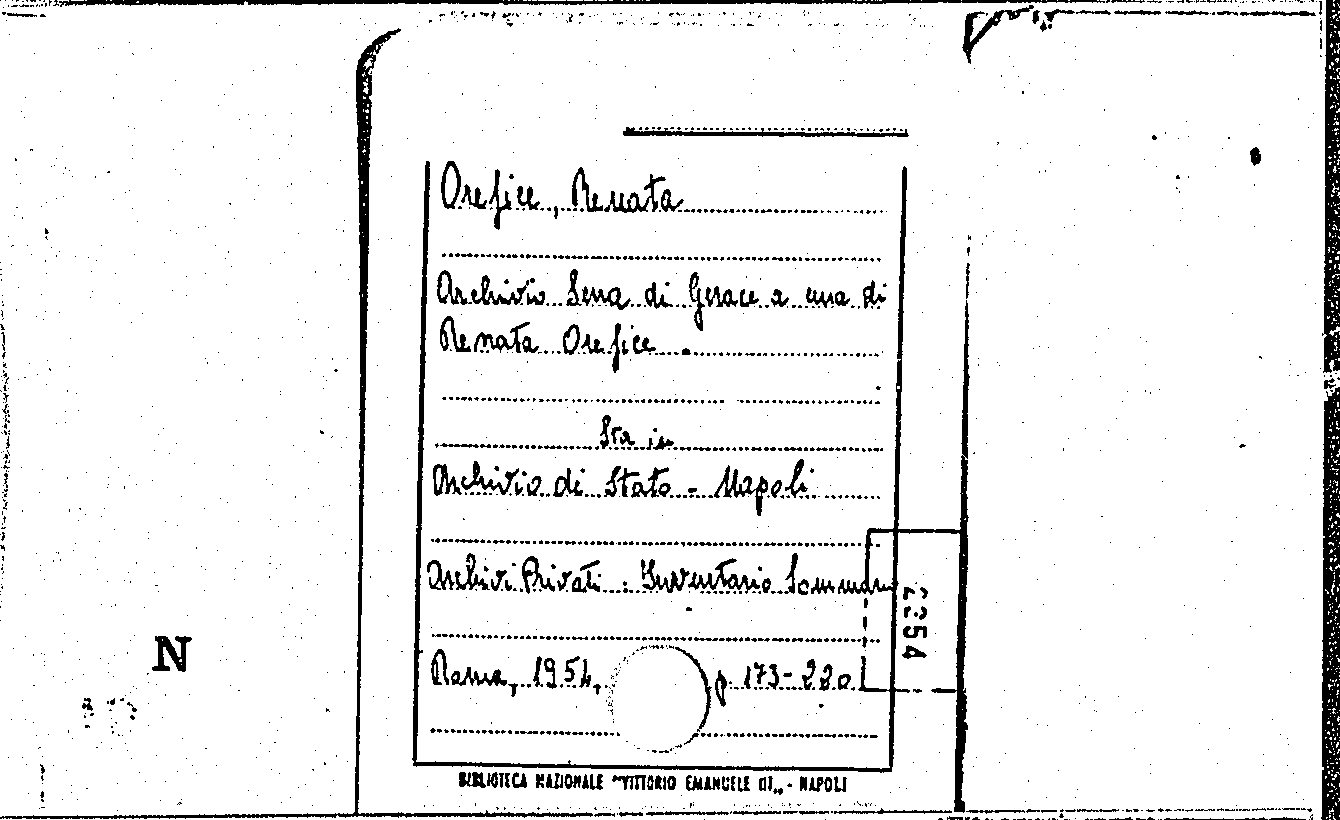 Orefice, Renata
Archivio Serra di Gerace a cura di
Renata Orefice.
Sta in
Archivio di Stato - Napoli
Archivi Privati. Inventario Sommario
Roma, 1954, p. 173-220
2254
N
BIBLIOTECA NAZIONALE "VITTORIO EMANUELE III„ - NAPOLI